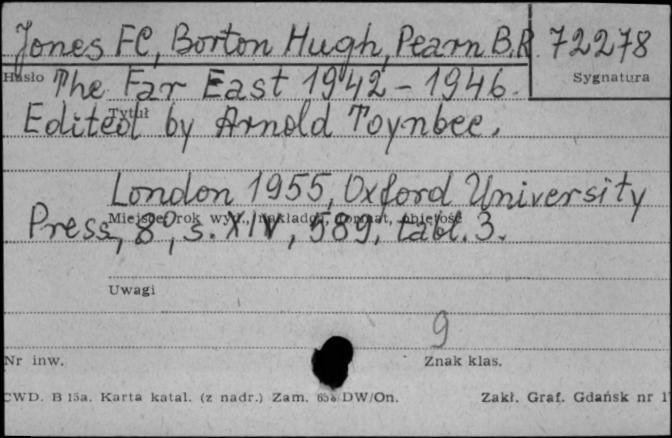 Jones FC, Borton Hugh, Pearn B.R. 72278
Hasło Sygnatura
The Far East 1942 - 1946.
Tytuł
Edited by Arnold Toynbee.
London 1955, Oxford University
Miejsce, rok wyd., nakładca, format, objętość
Press, 8°, s. XIV, 589, tabl. 3.
Uwagi
9
Nr inw. Znak klas.
CWD. B 15a. Karta katal. (z nadr.) Zam. DW/On. Zakł. Graf. Gdańsk nr